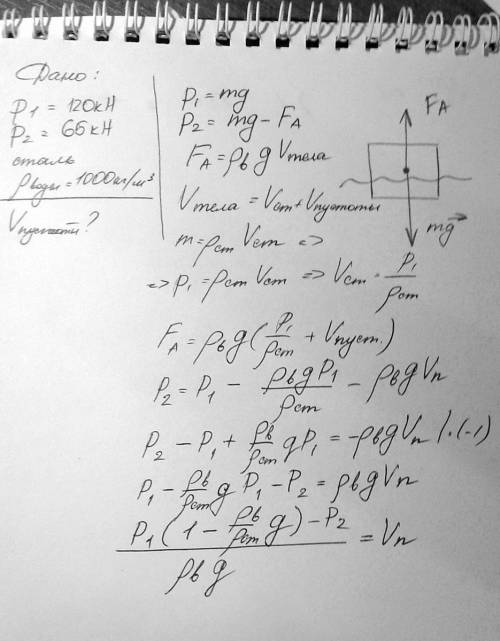 Дано:
P1 = 120кН
P2 = 65кН
сталь
ρводы = 1000кг/м³
Vпустоты?
P1 = mg
P2 = mg - FA
FA = ρв g Vтела
Vтела = Vст + Vпустоты
m = ρст Vст =>
=> P1 = ρст Vст => Vст = P1/ρст
FA
mg
FA = ρв g (P1/ρст + Vпуст.)
P2 = P1 - ρв g P1/ρст - ρв g Vп
P2 - P1 + ρв/ρст g P1 = -ρв g Vп | · (-1)
P1 - ρв/ρст g P1 - P2 = ρв g Vп
P1 (1 - ρв/ρст g) - P2 / ρв g = Vп